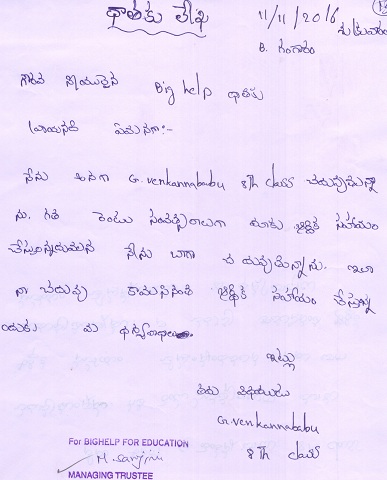 దాతకు లేఖ
11/11/2016
శుక్రవారం
B. గంగారం
గౌరవ నీయులైన Big help దాతకు
వ్రాయునది ఏమనగా:-
నేను అనగా G.venkannababu 8th class చదువుతున్నా
ను. గత రెండు సంవత్సరాలుగా మాకు ఆర్థిక సహాయం
చేస్తున్నందువలన నేను బాగా చదువుతున్నాను. ఇలా
నా చదువు ఆర్థిక సహాయం చేస్తున్న
ందుకు మీ ధన్యవాదాలు.
ఇట్లు
మీ విధేయుడు
G.venkannababu
8th class
For BIGHELP FOR EDUCATION
MANAGING TRUSTEE